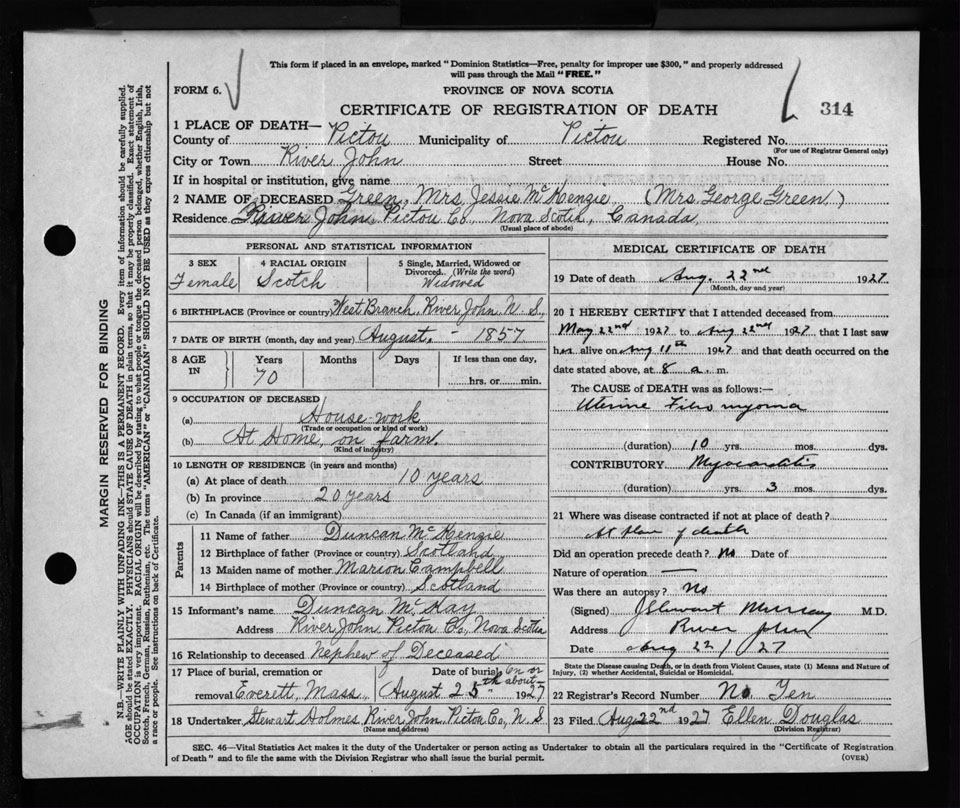 This form if placed in an envelope, marked "Dominion Statistics—Free, penalty for improper use $300," and properly addressed
will pass through the Mail "FREE."
FORM 6.
PROVINCE OF NOVA SCOTIA
CERTIFICATE OF REGISTRATION OF DEATH
314
1 PLACE OF DEATH—
County of Pictou Municipality of Pictou Registered No.
(For use of Registrar General only)
City or Town River John Street House No.
If in hospital or institution, give name
2 NAME OF DECEASED Green, Mrs. Jessie McKenzie (Mrs. George Green.)
Residence River John, Pictou Co., Nova Scotia, Canada,
(Usual place of abode)
PERSONAL AND STATISTICAL INFORMATION
3 SEX Female
4 RACIAL ORIGIN Scotch
5 Single, Married, Widowed or
Divorced. (Write the word)
Widowed
6 BIRTHPLACE (Province or country) West Branch, River John, N. S.,
7 DATE OF BIRTH (month, day and year) August, - 1857
8 AGE IN
Years 70
Months
Days
If less than one day,
hrs. or min.
9 OCCUPATION OF DECEASED
(a) House-work
(Trade or occupation or kind of work)
(b) At Home, on farm.
(Kind of industry)
10 LENGTH OF RESIDENCE (in years and months)
(a) At place of death 10 years
(b) In province 20 years
(c) In Canada (if an immigrant)
Parents
11 Name of father Duncan McKenzie
12 Birthplace of father (Province or country) Scotland
13 Maiden name of mother Marion Campbell
14 Birthplace of mother (Province or country) Scotland
15 Informant's name Duncan McKay
Address River John Pictou Co., Nova Scotia
16 Relationship to deceased Nephew of Deceased
17 Place of burial, cremation or removal Everett, Mass.,
Date of burial on or about-
August 25th 1927
18 Undertaker Stewart Holmes, River John, Pictou Co., N. S.
(Name and address)
MEDICAL CERTIFICATE OF DEATH
19 Date of death Aug. 22nd 1927
(Month, day and year)
20 I HEREBY CERTIFY that I attended deceased from
May 22nd 1927 to Aug 22nd 1927 that I last saw
her alive on Aug 11th 1927 and that death occurred on the
date stated above, at 8 a. m.
The CAUSE of DEATH was as follows:—
Uterine Fibro myoma
(duration) 10 yrs. mos. dys.
CONTRIBUTORY Myocarditis
(duration) yrs. 3 mos. dys.
21 Where was disease contracted if not at place of death?
At place of death
Did an operation precede death? No Date of
Nature of operation —
Was there an autopsy? No
(Signed) J Stewart Murray M.D.
Address River John
Date Aug 22 / 27
State the Disease causing Death, or in death from Violent Causes, state (1) Means and Nature of
Injury, (2) whether Accidental, Suicidal or Homicidal.
22 Registrar's Record Number No Ten
23 Filed Aug 22nd 1927 Ellen Douglas
(Division Registrar)
SEC. 46—Vital Statistics Act makes it the duty of the Undertaker or person acting as Undertaker to obtain all the particulars required in the "Certificate of Registration
of Death" and to file the same with the Division Registrar who shall issue the burial permit.
(OVER)
MARGIN RESERVED FOR BINDING
N.B.—WRITE PLAINLY WITH UNFADING INK—THIS IS A PERMANENT RECORD. Every item of information should be carefully supplied.
AGE should be stated EXACTLY. PHYSICIANS should STATE CAUSE OF DEATH in plain terms, so that it may be properly classified. Exact statement of
OCCUPATION is very important. RACIAL ORIGIN will be described by stating to what people or tongue the deceased person belonged, whether English, Irish,
Scotch, French, German, Russian, Ruthenian, etc. The terms "AMERICAN" or "CANADIAN" SHOULD NOT BE USED as they express citizenship but not
a race or people. See instructions on back of Certificate.